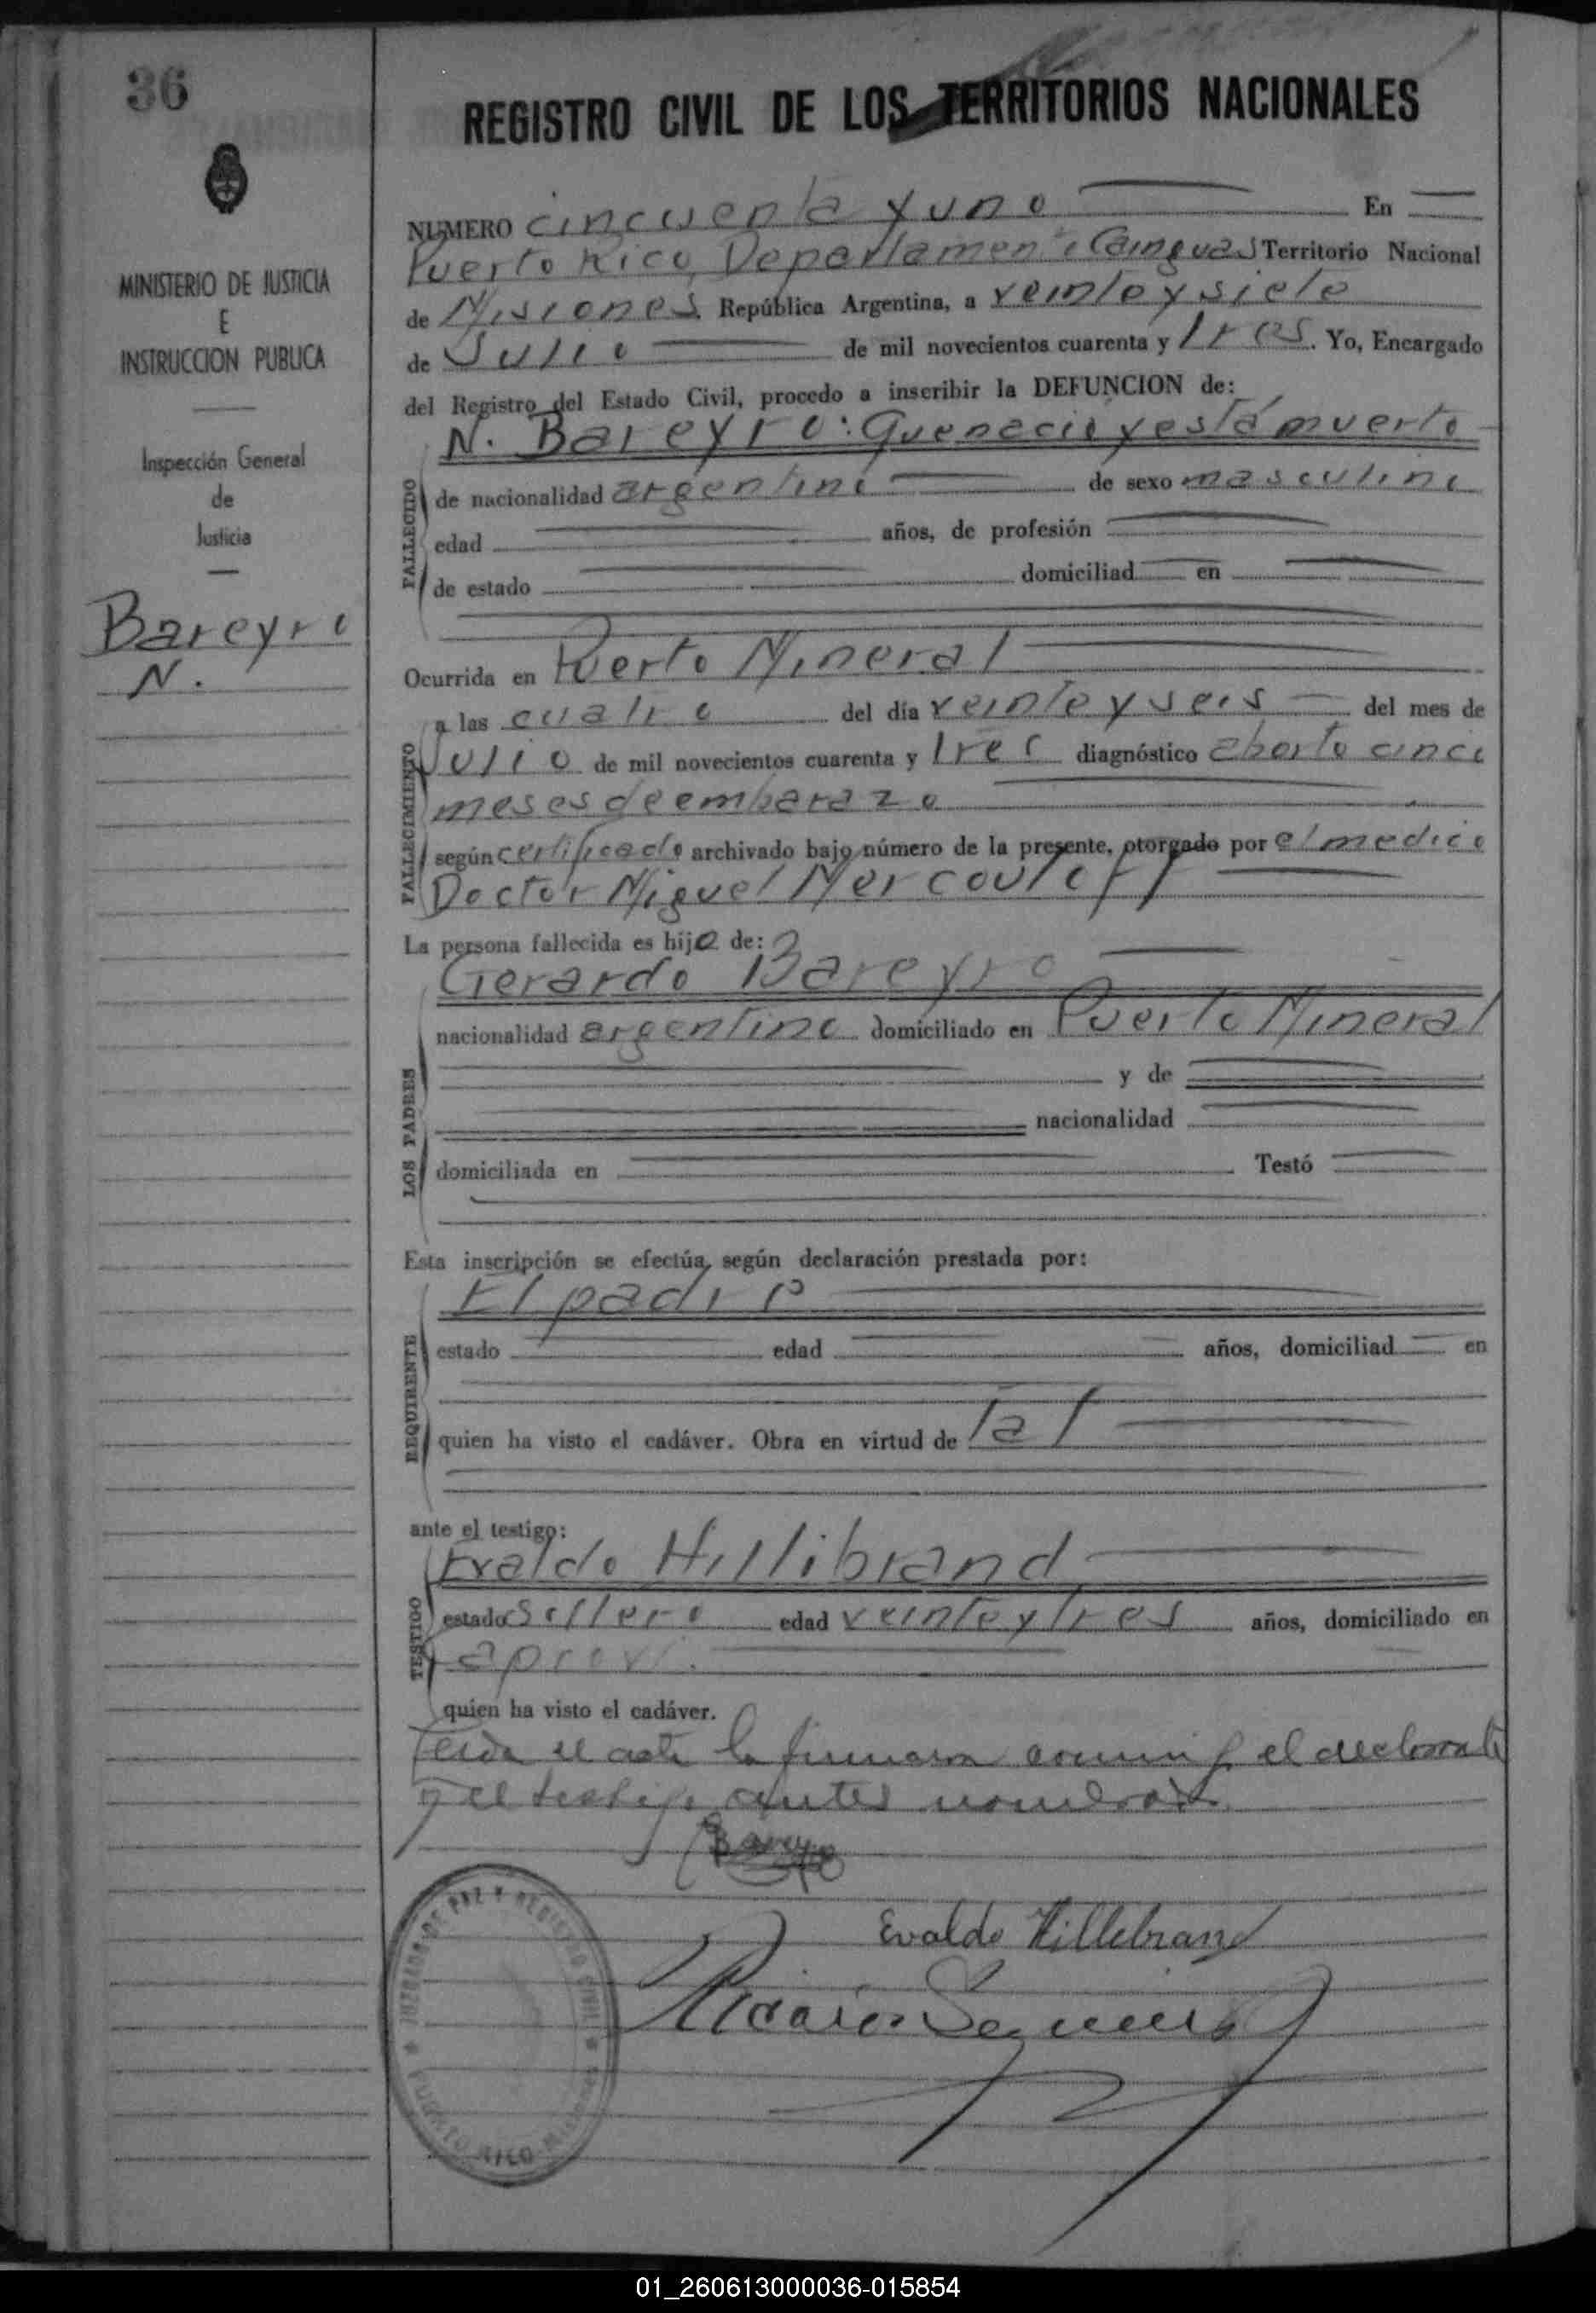 36
REGISTRO CIVIL DE LOS TERRITORIOS NACIONALES
MINISTERIO DE JUSTICIA
E
INSTRUCCION PUBLICA
Inspección General
de
Justicia
Bareyro
N.
NUMERO cincuenta y uno En
Puerto Rico, Departamento Cainguas Territorio Nacional
de Misiones. República Argentina, a veinte y siete
de Julio de mil novecientos cuarenta y tres. Yo, Encargado
del Registro del Estado Civil, procedo a inscribir la DEFUNCION de:
N. Bareyro: Que nacio y está muerto
FALLECIDO
de nacionalidad argentino de sexo masculino
edad años, de profesión
de estado domiciliad en
Ocurrida en Puerto Mineral
FALLECIMIENTO
a las cuatro del día veinte y seis del mes de
Julio de mil novecientos cuarenta y tres diagnóstico aborto cinco
meses de embarazo
según certificado archivado bajo número de la presente, otorgado por el medico
Doctor Miguel Mercouloff
La persona fallecida es hijo de:
Gerardo Bareyro
LOS PADRES
nacionalidad argentino domiciliado en Puerto Mineral
y de
nacionalidad
domiciliada en Testó
Esta inscripción se efectúa, según declaración prestada por:
El padre
REQUIRENTE
estado edad años, domiciliad en
quien ha visto el cadáver. Obra en virtud de tal
ante el testigo:
Evaldo Hillibrand
TESTIGO
estado soltero edad veinte y tres años, domiciliado en
quien ha visto el cadáver.
Leida el acta la firmaron conmigo el declarante
y el testigo antes nombrado.
Bareyro
Evaldo Hillebrand
JUZGADO DE PAZ Y REGISTRO CIVIL
PUERTO RICO MISIONES
01_260613000036-015854